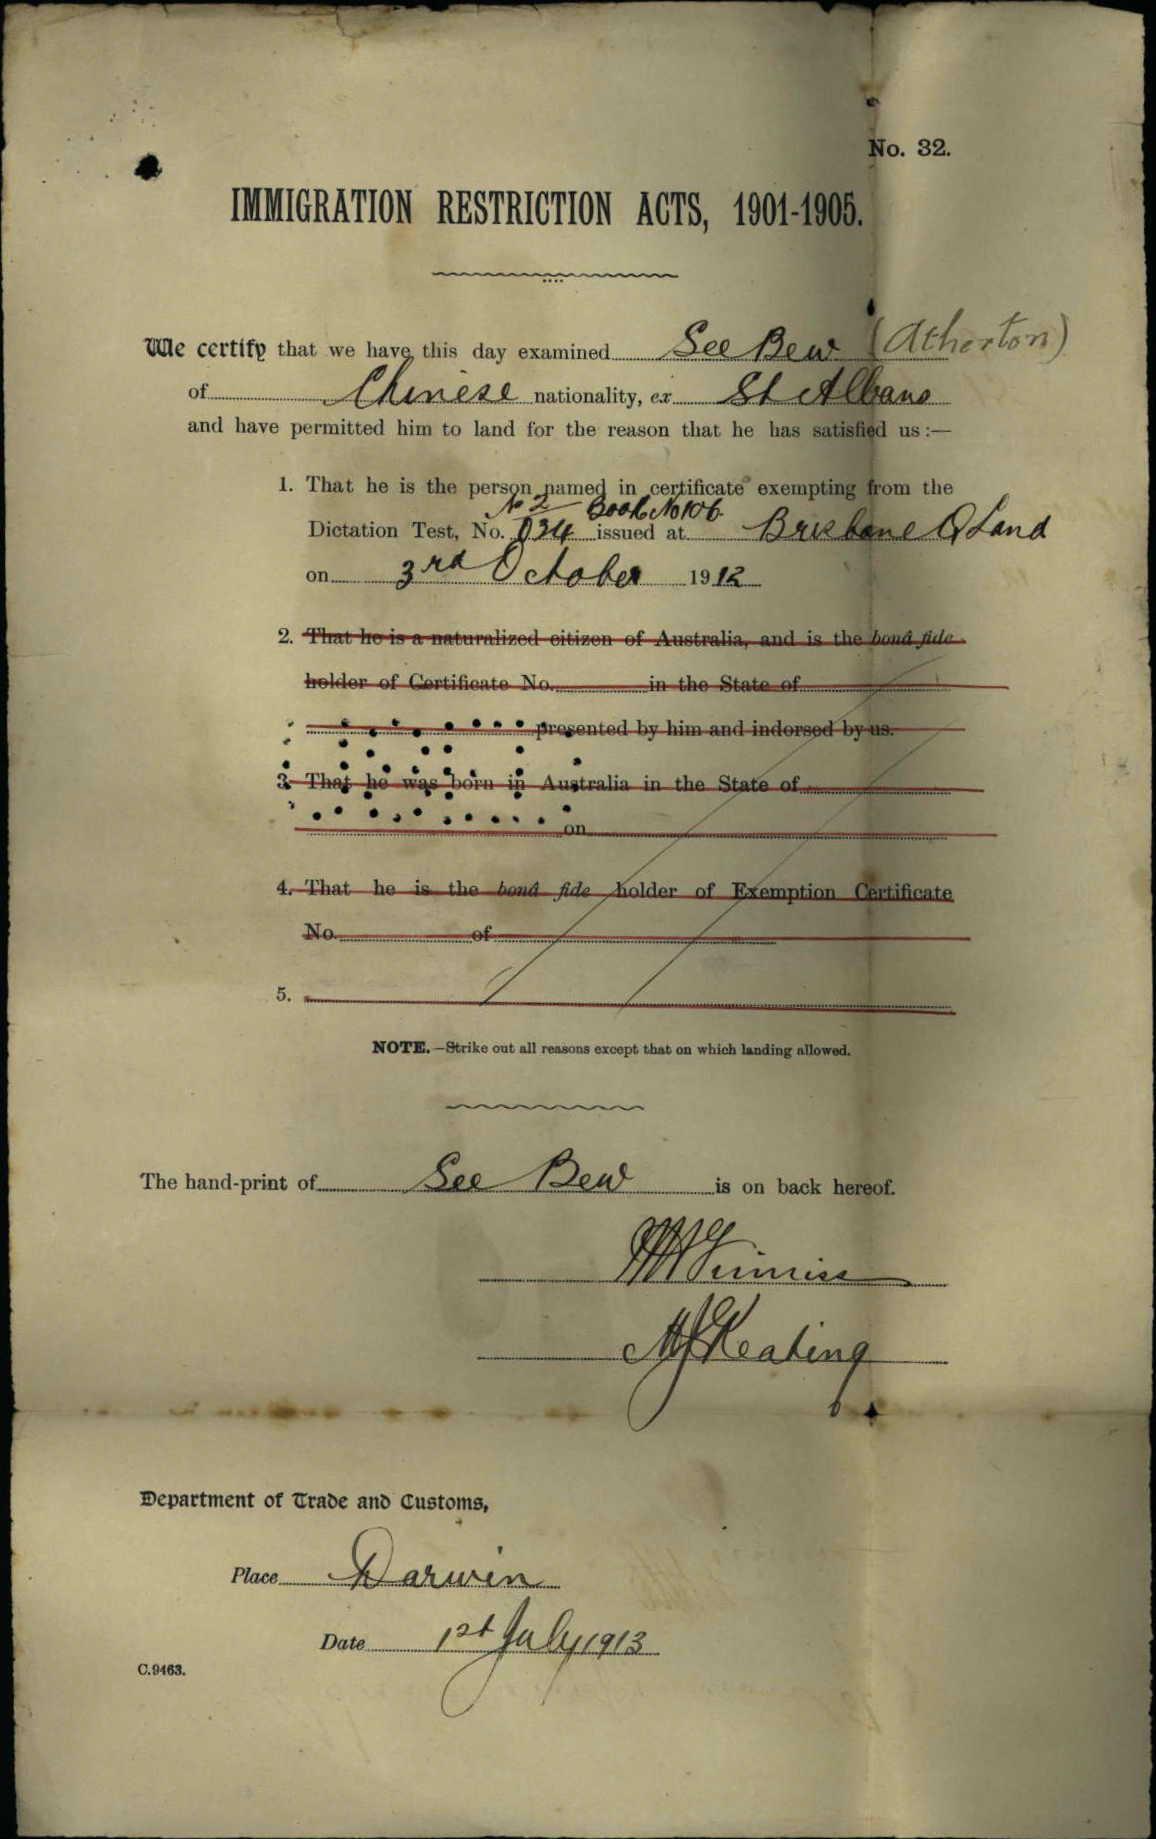 No. 32.
IMMIGRATION RESTRICTION ACTS, 1901-1905.
We certify that we have this day examined See Bew (Atherton)
of Chinese nationality, ex St Albans
and have permitted him to land for the reason that he has satisfied us :—
1. That he is the person named in certificate exempting from the
No 2 Book No 106
Dictation Test, No. 034 issued at Brisbane QLand
on 3rd October 1912
2. That he is a naturalized citizen of Australia, and is the bonâ fide
holder of Certificate No. in the State of
presented by him and indorsed by us.
3. That he was born in Australia in the State of
on
4. That he is the bonâ fide holder of Exemption Certificate
No. of
5.
NOTE.—Strike out all reasons except that on which landing allowed.
The hand-print of See Bew is on back hereof.
MJ Keating
Department of Trade and Customs,
Place Darwin
Date 1st July 1913
C.9463.